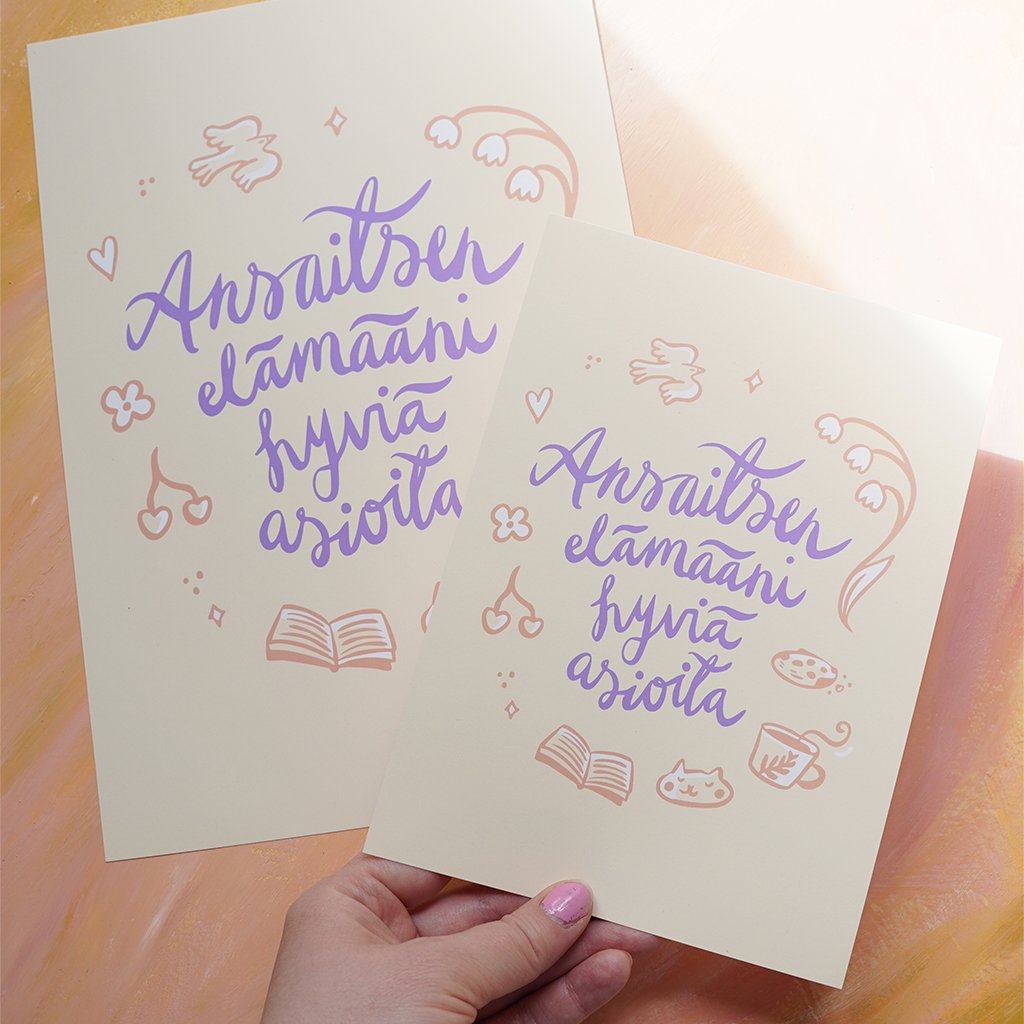 Ansaitsen
elämääni
hyviä
asioita
Ansaitsen
elämääni
hyviä
asioita